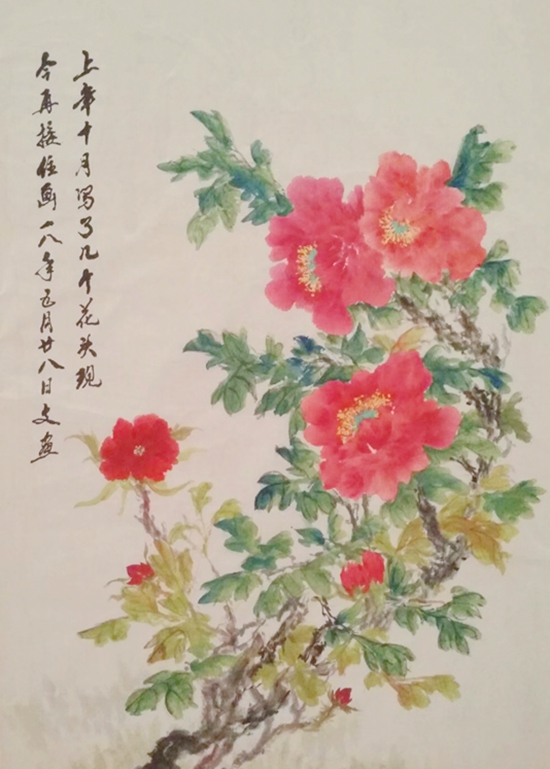 上年十月写了几个花头现
今再接住画一八年五月廿八日文画